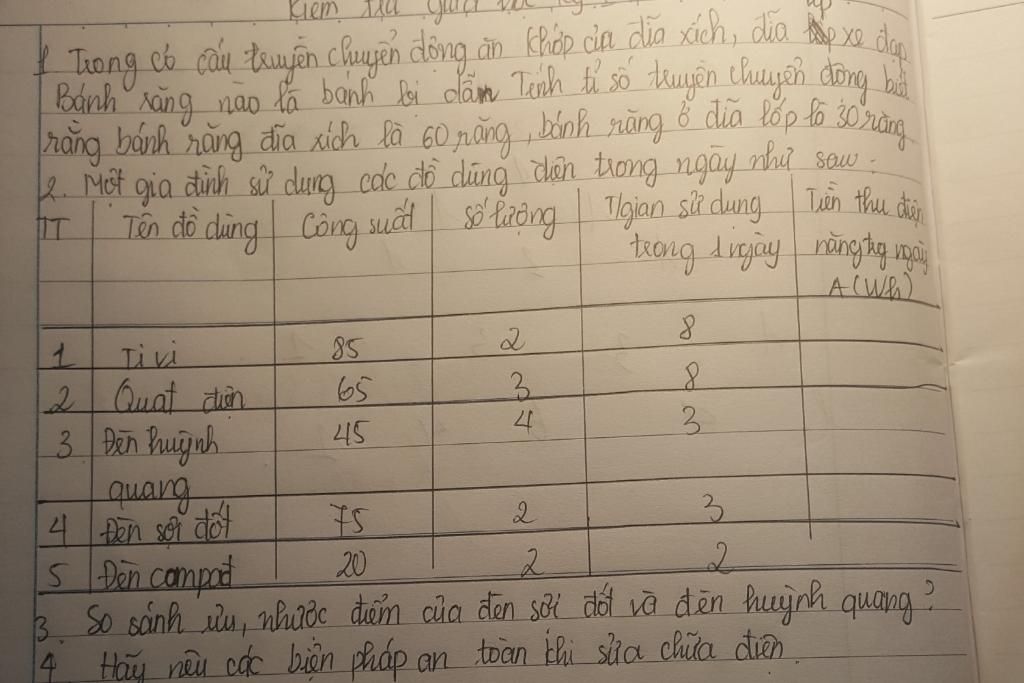 Kiểm tra giữa
1 Trong cơ cấu truyền chuyển động ăn khớp của đĩa xích, đĩa líp xe đạp
Bánh răng nào là bánh bị dẫn Tính tỉ số truyền chuyển động biết
rằng bánh răng đĩa xích là 60 răng, bánh răng ở đĩa lốp là 30 răng
2. Một gia đình sử dụng các đồ dùng điện trong ngày như sau:
TT Tên đồ dùng Công suất Số lượng T/gian sử dụng trong 1 ngày Tiền thu điện năng tg ngày A(Wh)
1 Ti vi 85 2 8
2 Quạt điện 65 3 8
3 Đèn huỳnh quang 45 4 3
4 Đèn sợi đốt 75 2 3
5 Đèn compact 20 2 2
3. So sánh ưu, nhược điểm của đèn sợi đốt và đèn huỳnh quang?
4 Hãy nêu các biện pháp an toàn khi sửa chữa điện.